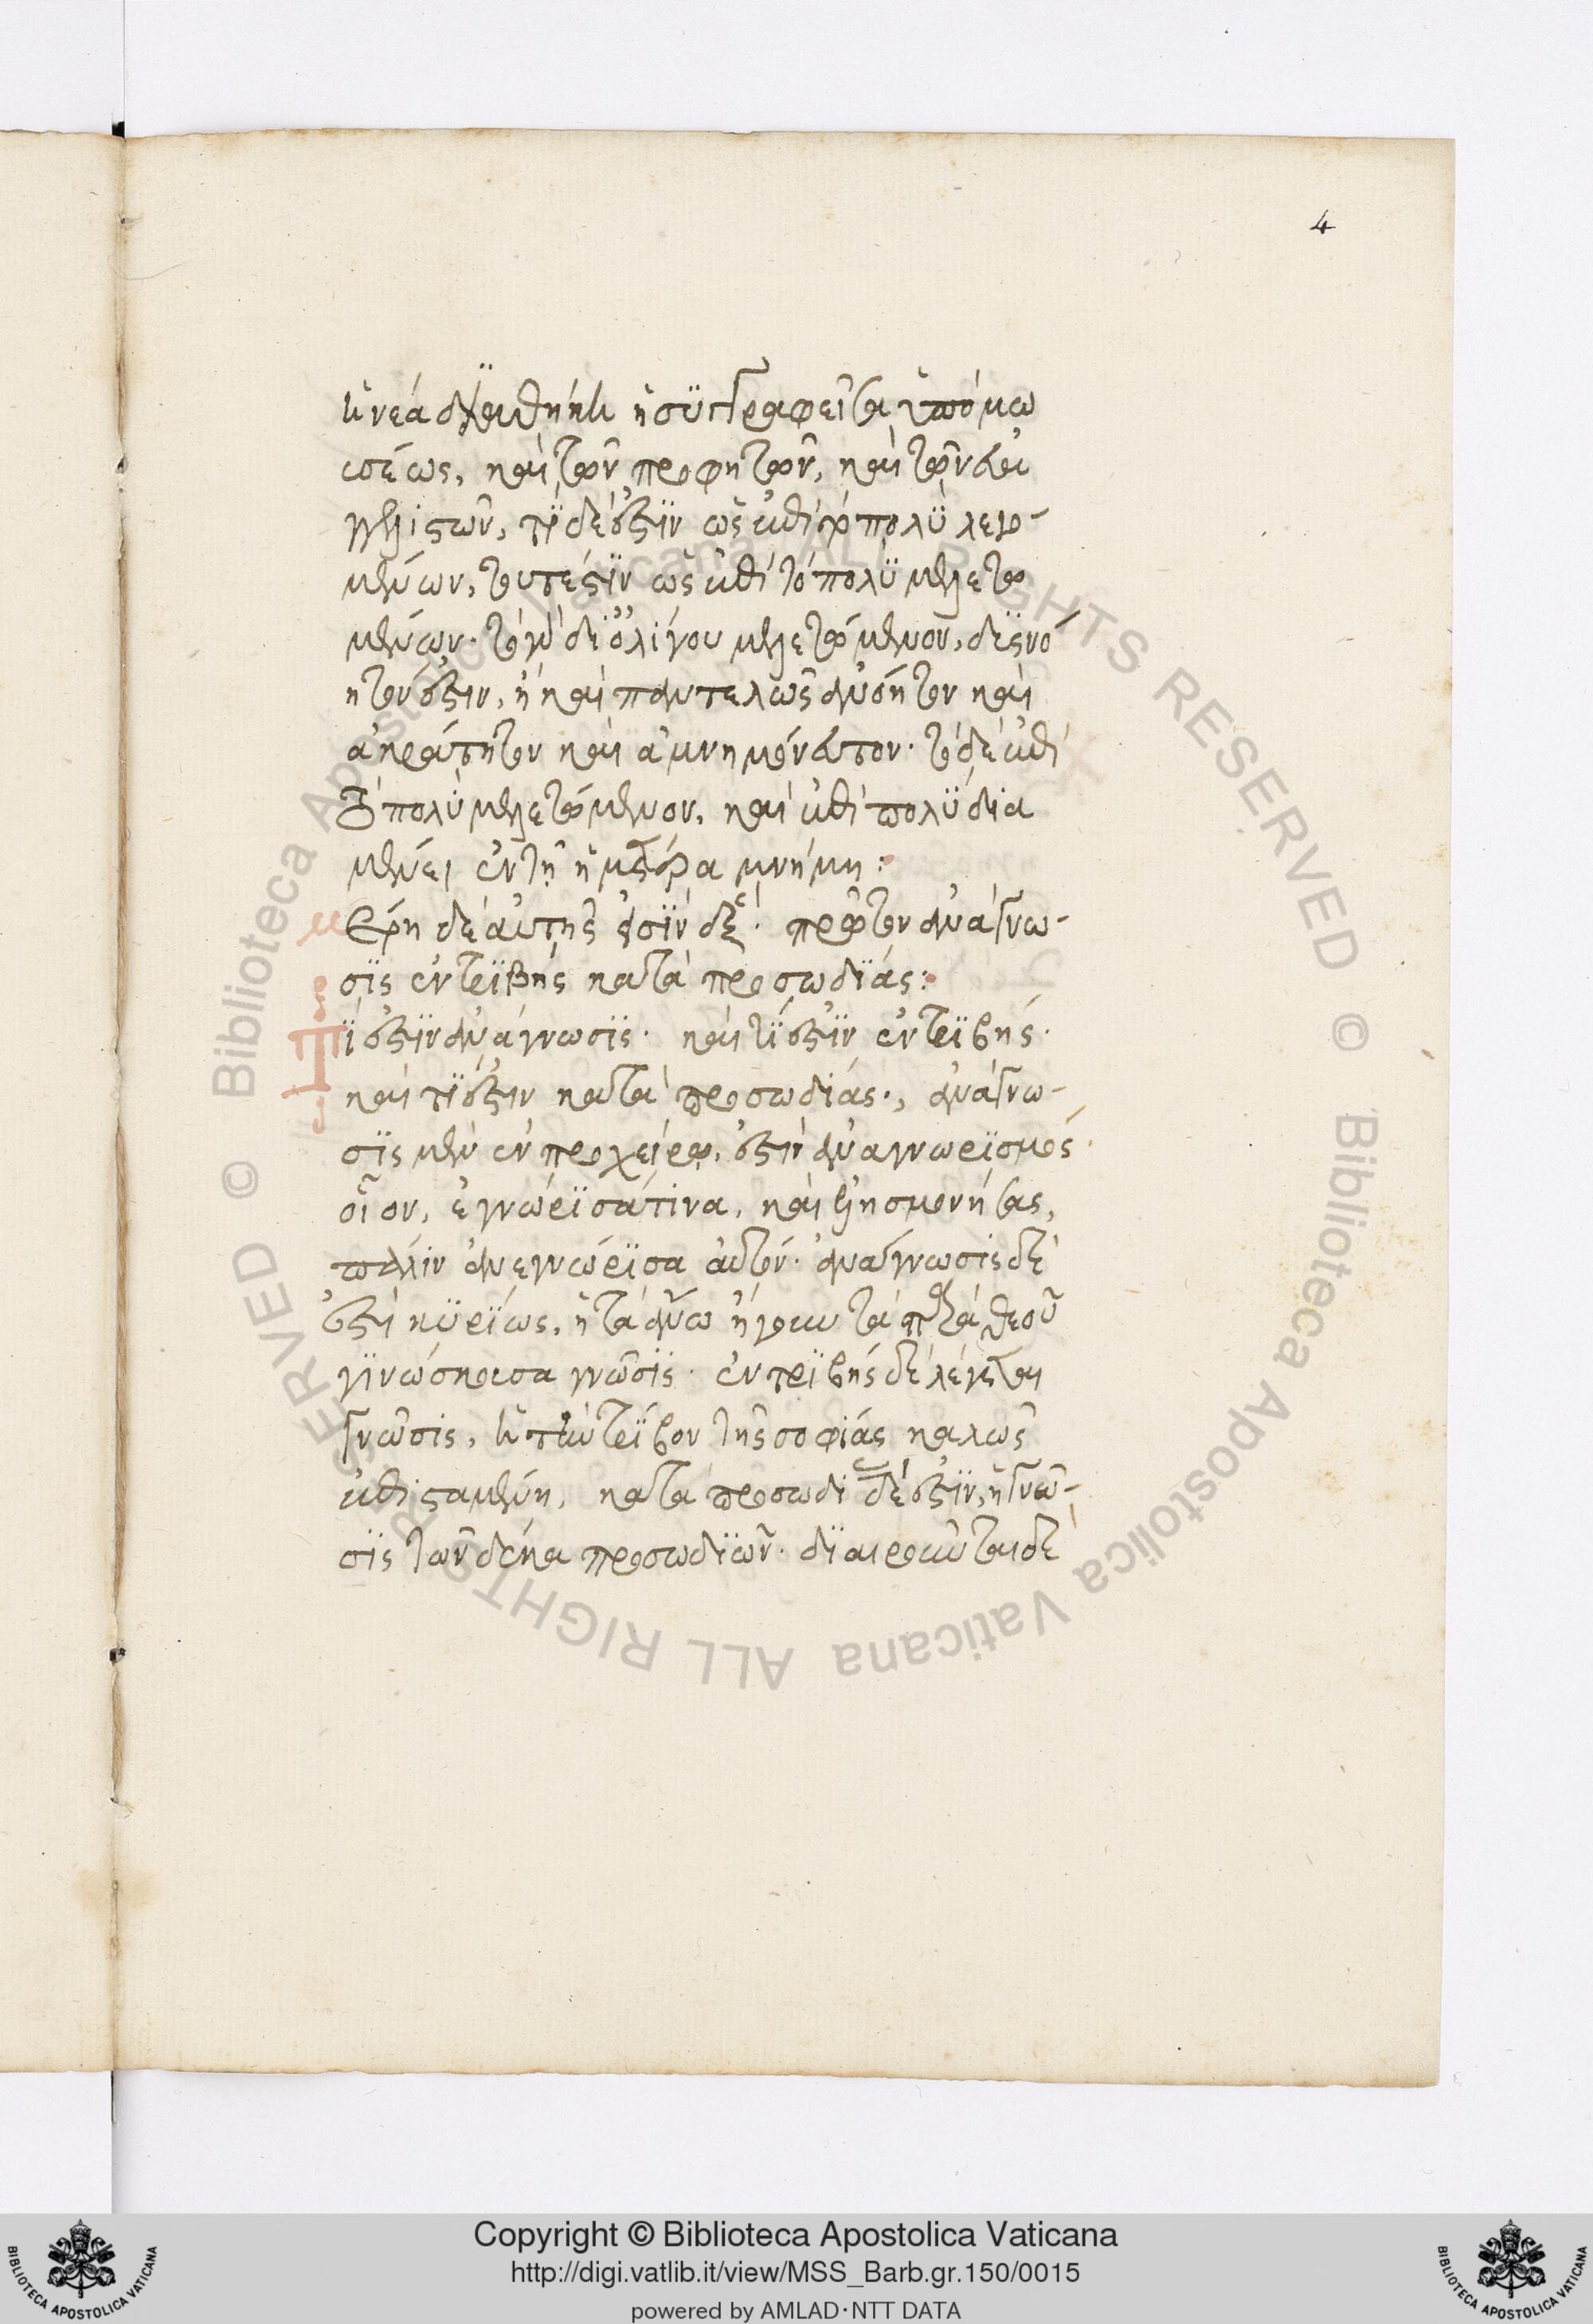 4
ἡ νέα διαθήκη ἡ συγγραφεῖσα ὑπὸ μω
σέως, καὶ τῶν προφητῶν, καὶ τῶν εὐαγ
γελιστῶν, τί δέ ἐστιν ὡς ἐπὶ τὸ πολὺ λεγο-
μένων, τουτέστιν ὡς ἐπὶ τὸ πολὺ μελετω
μένων· τὸ γὰρ δι ὀλίγου μελετώμενον, δυσνό
ητον ἐστιν, ἢ καὶ παντελῶς ἀνόητον καὶ
ἀκράτητον καὶ ἀμνημόνευτον· τὸ δὲ ἐπὶ
τὸ πολὺ μελετώμενον, καὶ ἐπὶ πολὺ δια
μένει ἐν τῇ ἡμετέρα μνήμη:
μέρη δὲ αὐτῆς εἰσὶν ἕξ· πρῶτον ἀνάγνω-
σις ἐντριβὴς κατὰ προσωδίας:
Τί ἐστιν ἀνάγνωσις· καὶ τί ἐστιν ἐντριβής·
καὶ τί ἐστιν κατὰ προσωδίας·, ἀνάγνω-
σις μὲν ἐν προχείρω, ἐστὶν ἀναγνωρισμός·
οἷον, ἐγνώρισά τινα, καὶ λησμονήσας,
πάλιν ἀνεγνώρισα αὐτόν· ἀνάγνωσις δέ
ἐστι κυρίως, ἡ τὰ ἄνω ἤγουν τὰ θεοῦ
γινώσκουσα γνῶσις· ἐντριβὴς δὲ λέγεται
γνῶσις, ἡ τὴν τρίβον τῆς σοφίας καλῶς
ἐπισταμένη, κατὰ προσωδί δέ ἐστιν, ἡ γνῶ-
σις τῶν δέκα προσωδιῶν· διαιροῦνται δὲ
Copyright © Biblioteca Apostolica Vaticana
http://digi.vatlib.it/view/MSS_Barb.gr.150/0015
powered by AMLAD·NTT DATA